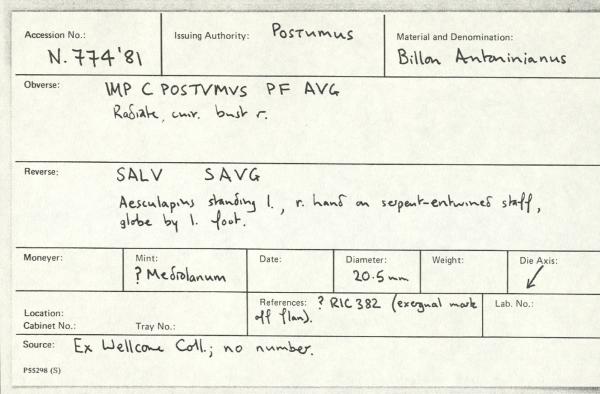 Accession No.: N. 774'81
Issuing Authority: POSTUMUS
Material and Denomination: Billon Antoninianus
Obverse: IMP C POSTVMVS PF AVG
Radiate, cuir. bust r.
Reverse: SALV SAVG
Aesculapius standing l., r. hand on serpent-entwined staff,
globe by l. foot.
Moneyer:
Mint: ? Mediolanum
Date:
Diameter: 20.5mm
Weight:
Die Axis: ↙
Location:
Cabinet No.: Tray No.:
References: ? RIC 382 (exergual mark
off flan).
Lab. No.:
Source: Ex Wellcome Coll.; no number.
P55298 (S)